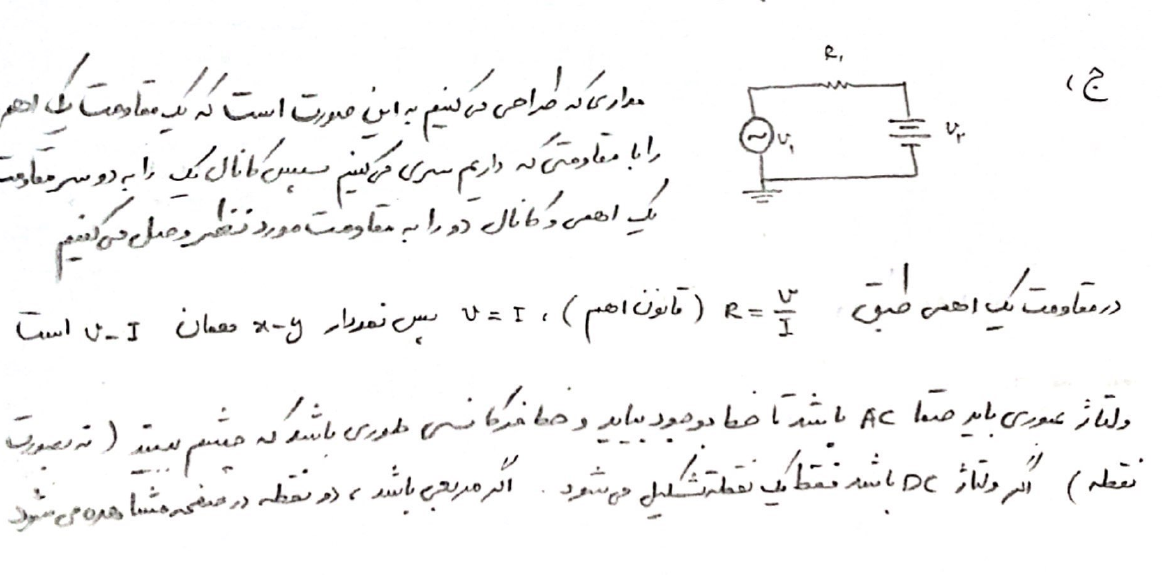 ج،
R₁
V₁
V₂
مداری که طراحی می‌کنیم به این صورت است که یک مقاومت یک اهم
را با مقاومتی که داریم سری می‌کنیم سپس کانال یک را به دو سر مقاومت
یک اهمی و کانال دو را به مقاومت مورد نظر وصل می‌کنیم
در مقاومت یک اهمی طبق R = V/I (قانون اهم) ، V = I پس نمودار x-y همان V-I است
ولتاژ عبوری باید حتما AC باشد تا خط بوجود بیاید و حتما فرکانسی طوری باشد که چشم ببیند (نه بصورت
نقطه) اگر ولتاژ DC باشد فقط یک نقطه تشکیل می‌شود. اگر مربعی باشد، دو نقطه در صفحه مشاهده می‌شود